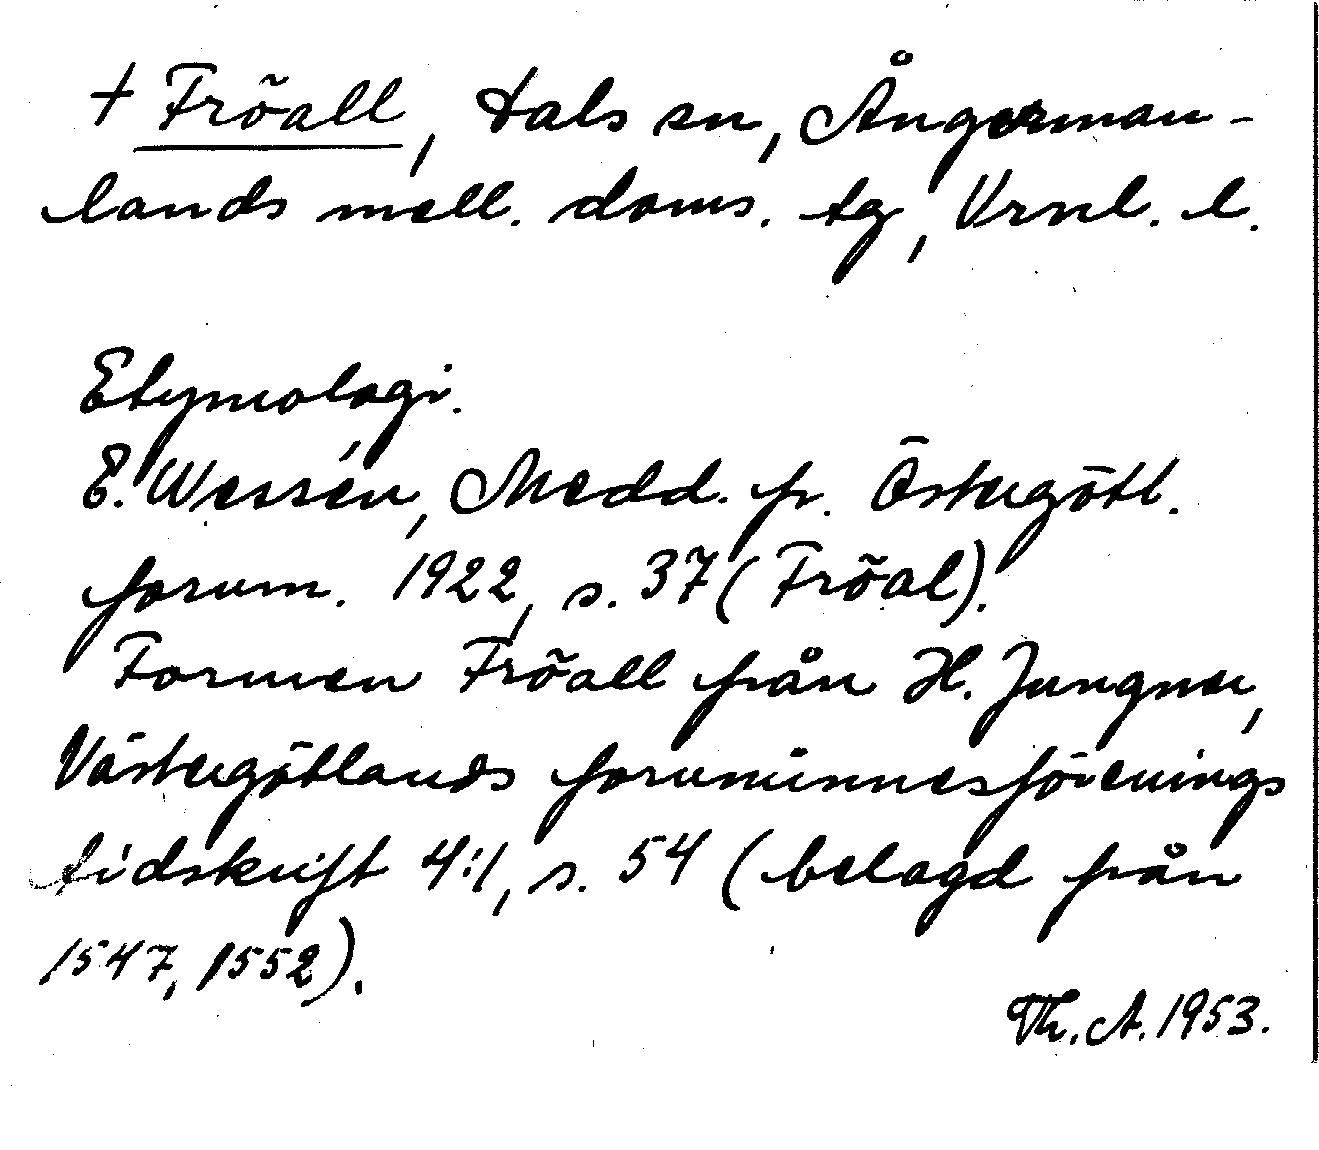 † Fröall, Dals sn, Ångerman-
lands mell. doms. tg, Vrnl. l.
Etymologi.
E. Wessén, Medd. fr. Östergötl.
fornm. 1922, s. 37 (Fröal).
Formen Fröall från H. Jungner,
Västergötlands fornminnesförenings
tidskrift 4:1, s. 54 (belagd från
1547, 1552).
Th. A. 1953.